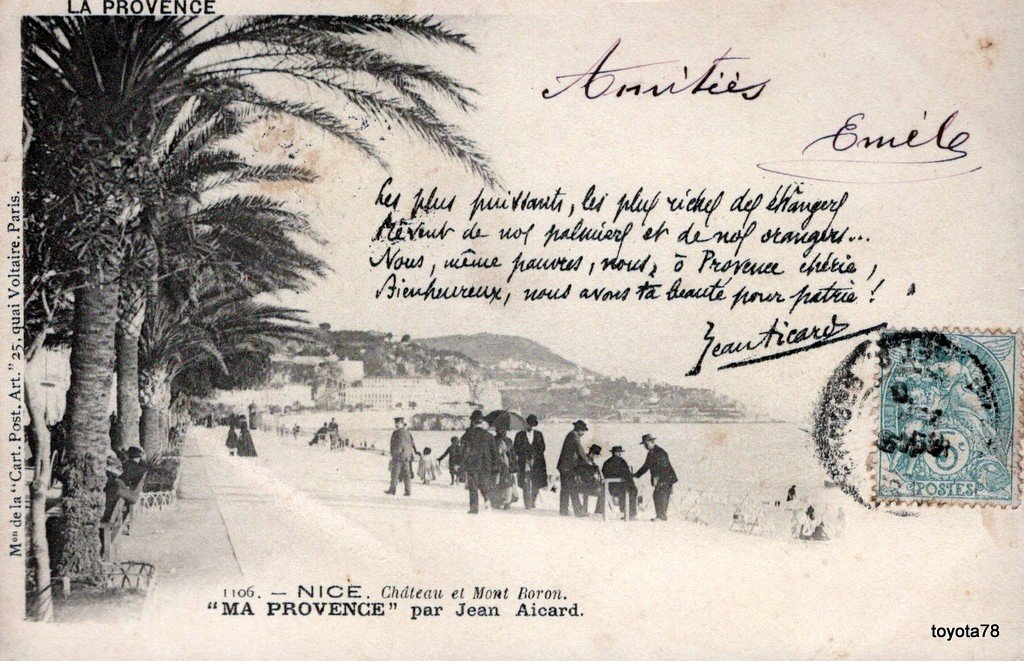 LA PROVENCE
Amitiés
Emile
Les plus puissants, les plus riches des étrangers
Rêvent de nos palmiers et de nos orangers...
Nous, même pauvres, nous, ô Provence chérie,
Bienheureux, nous avons ta beauté pour patrie !
Jean Aicard
Mon de la "Cart. Post. Art." 25, quai Voltaire. Paris.
5c
POSTES
1106. — NICE. Château et Mont Boron.
"MA PROVENCE" par Jean Aicard.
toyota78